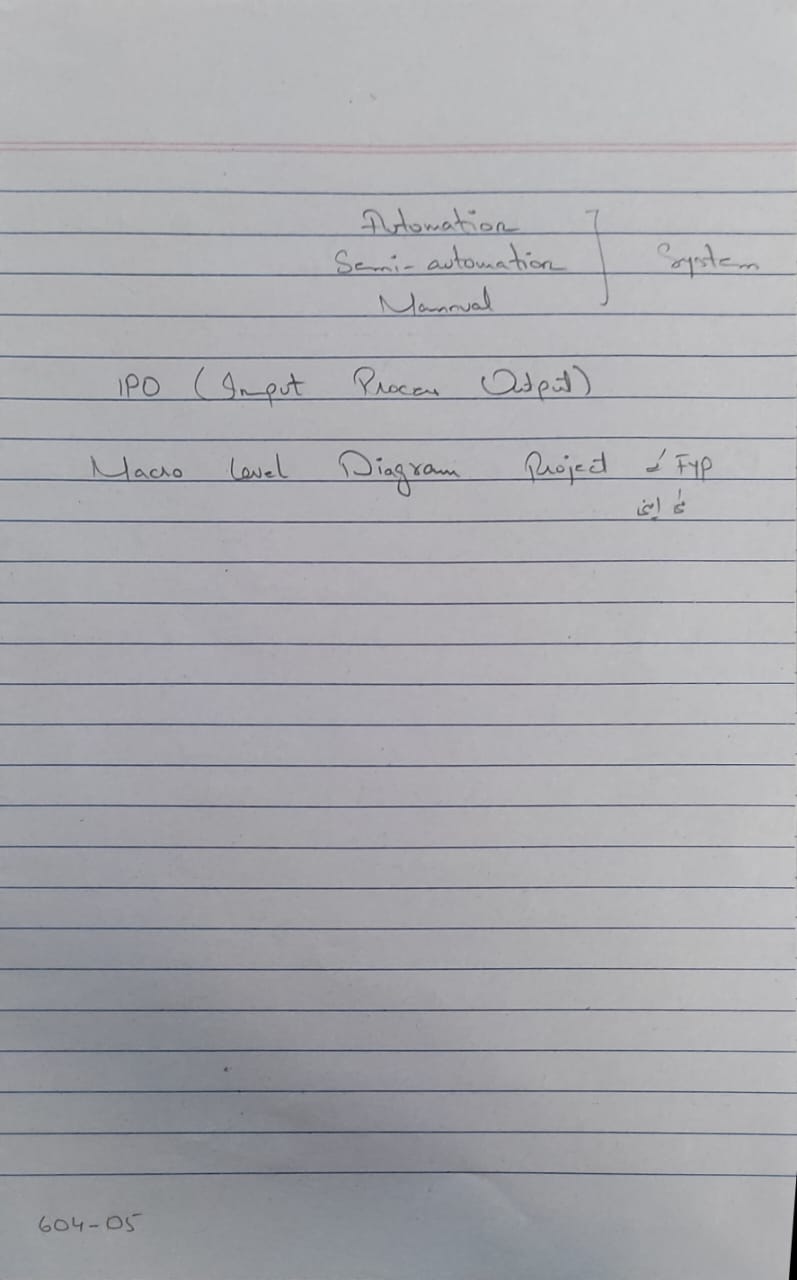 Automation
Semi-automation ] System
Mannual
IPO (Input Process Output)
Macro Level Diagram Project FYP
604-05